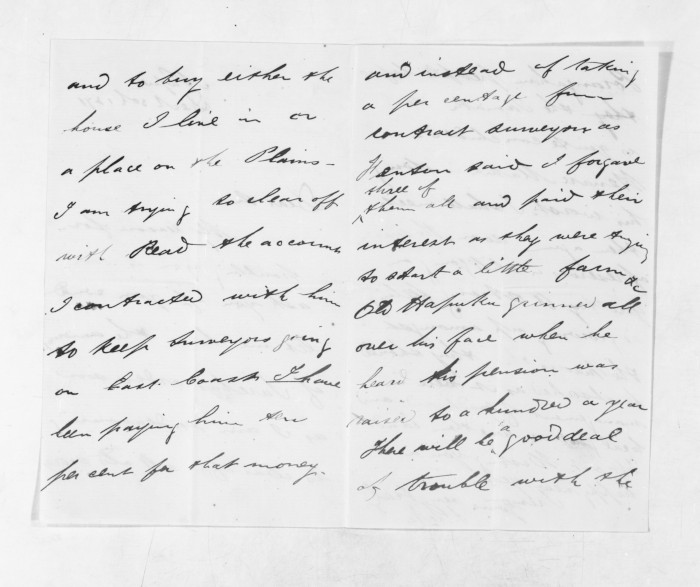 and to buy either the
house I live in or
a place on the Plains -
I am trying to clear off
with Read the accounts
I contracted with him
to keep Surveyors going
on East Coast I have
been paying him ten
per cent for that money.
and instead of taking
a per centage from
contract surveyors as
Henson said I forgave
three of
them all and paid their
interest as they were trying
to start a little farm &c
Old Hapuku grinned all
over his face when he
heard his pension was
raised to a hundred a year
There will be a good deal
of trouble with the